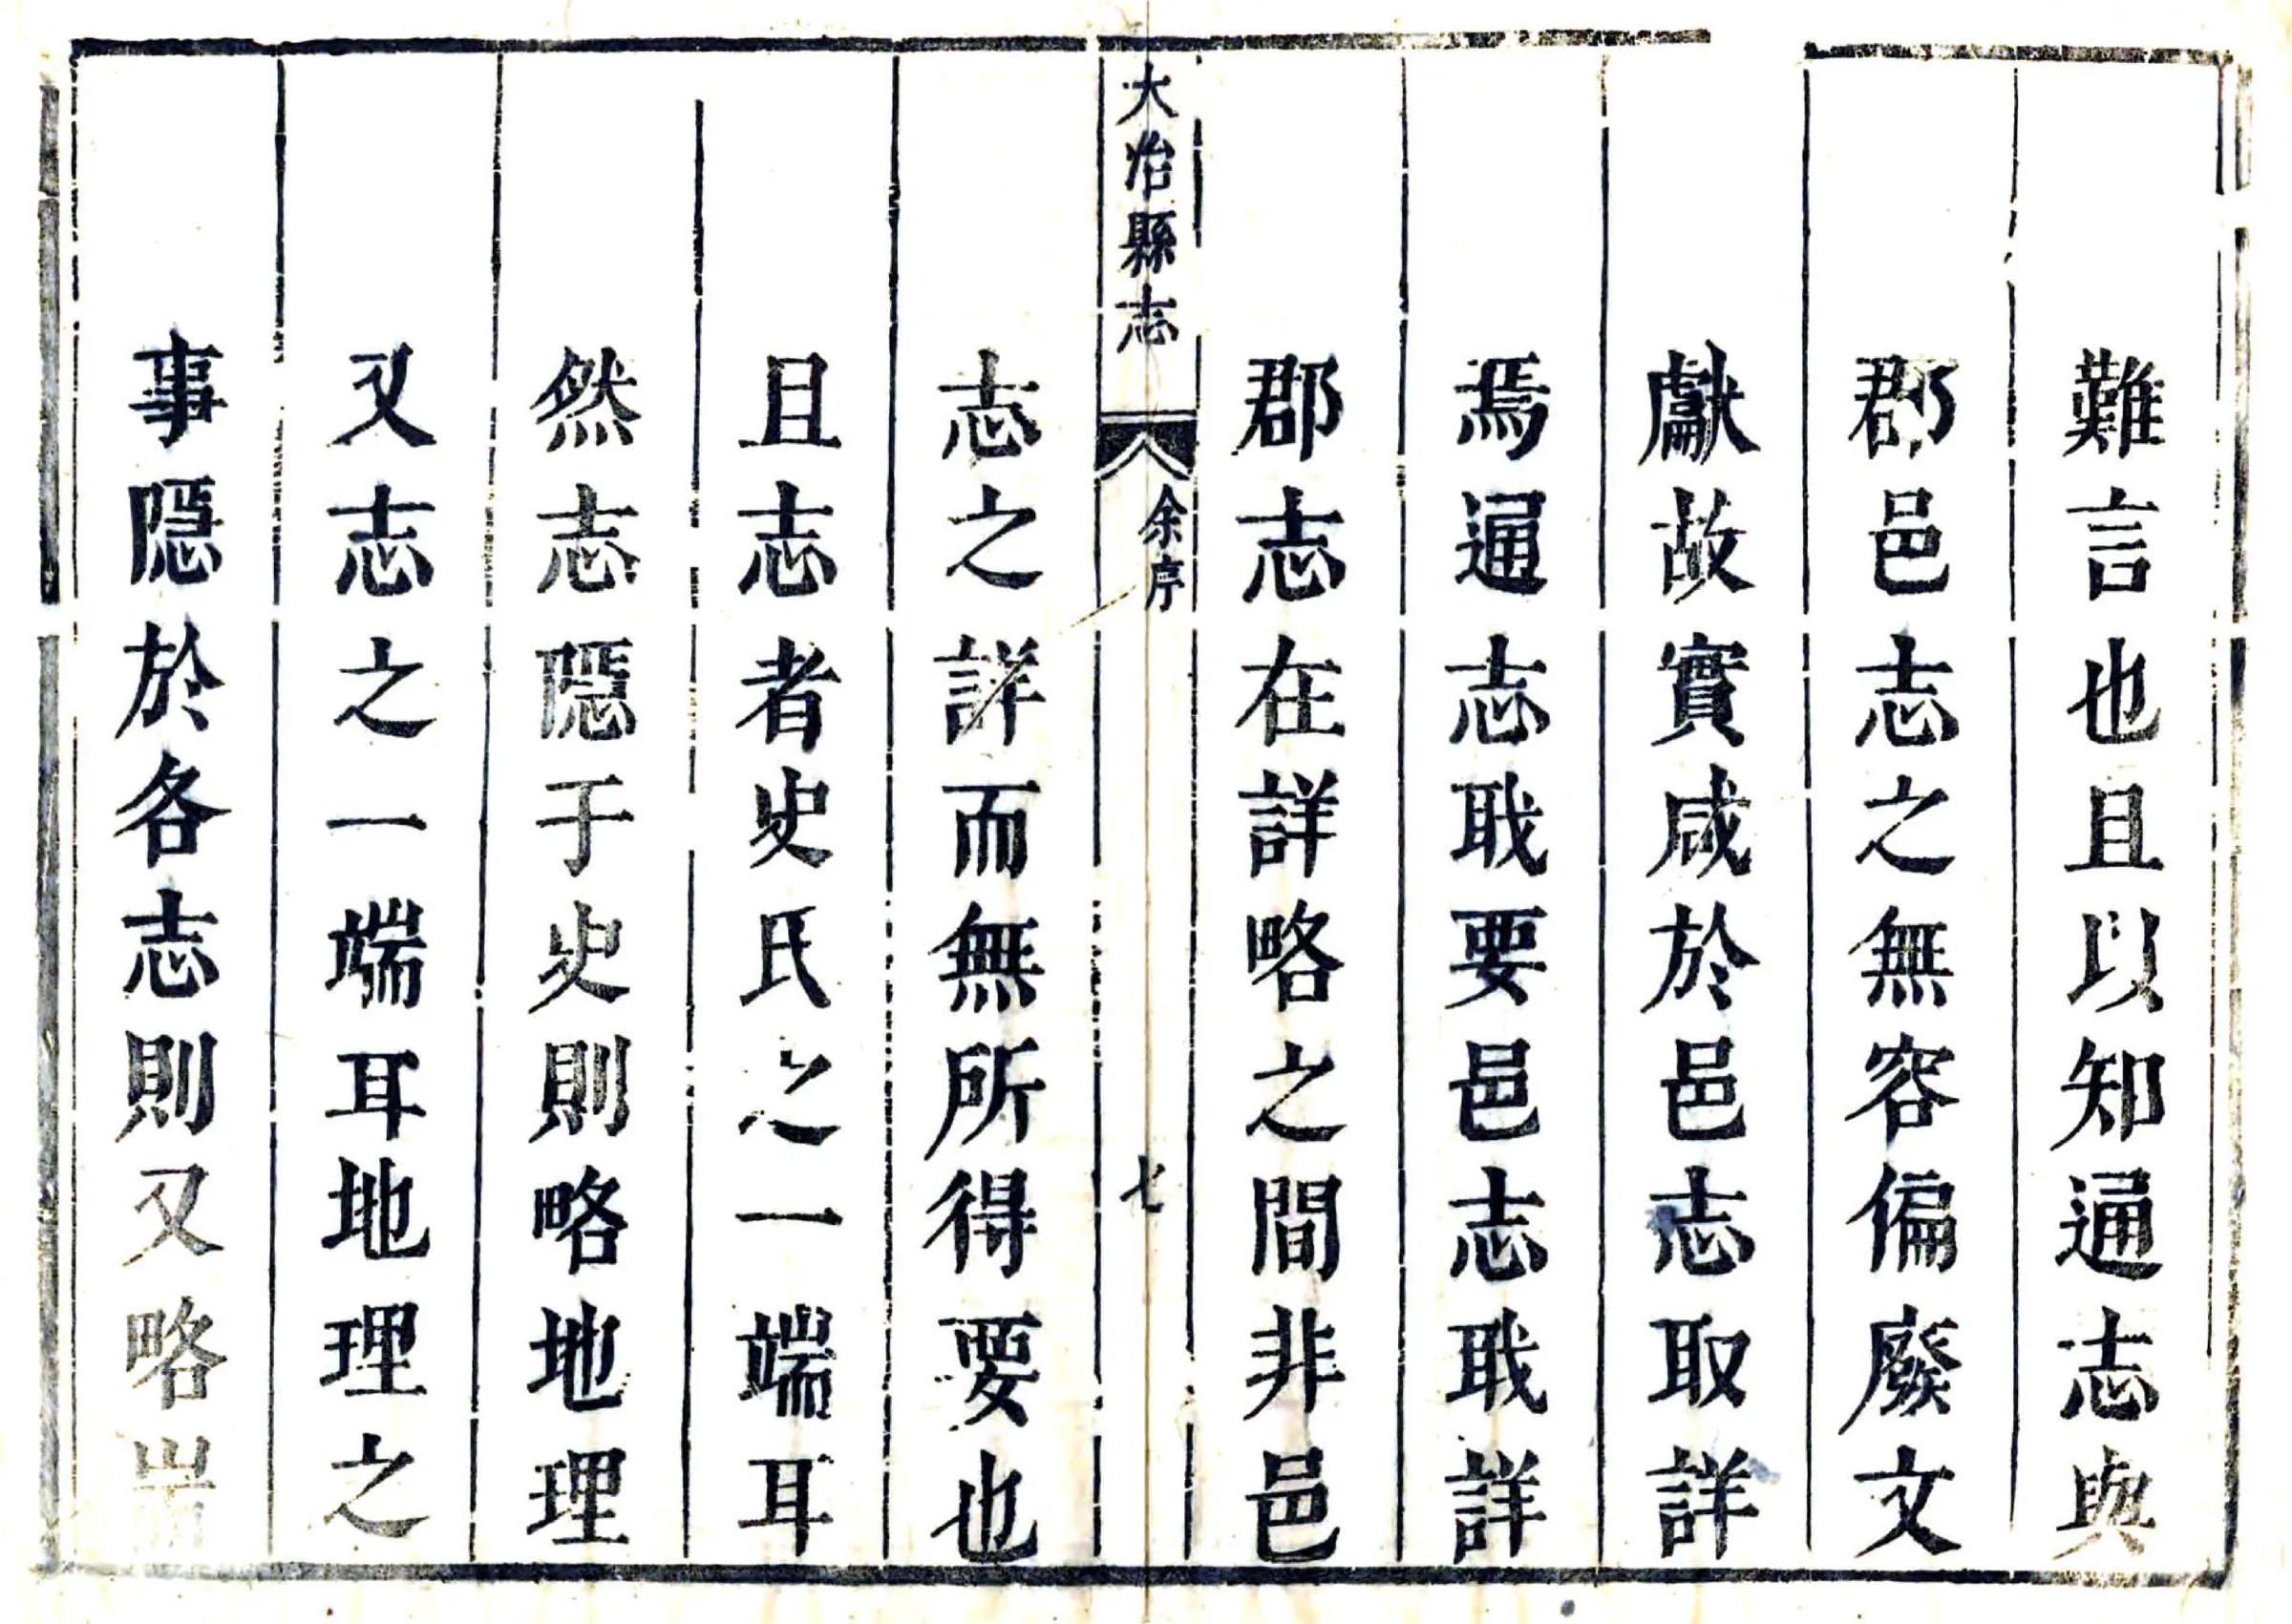 難言也且以知通志與
郡邑志之無容偏廢文
獻故實咸於邑志取詳
焉通志職要邑志職詳
郡志在詳略之間非邑
大冶縣志 余序 七
志之詳而無所得要也
且志者史氏之一端耳
然志隱于史則略地理
又志之一端耳地理之
事隱於各志則又略耑